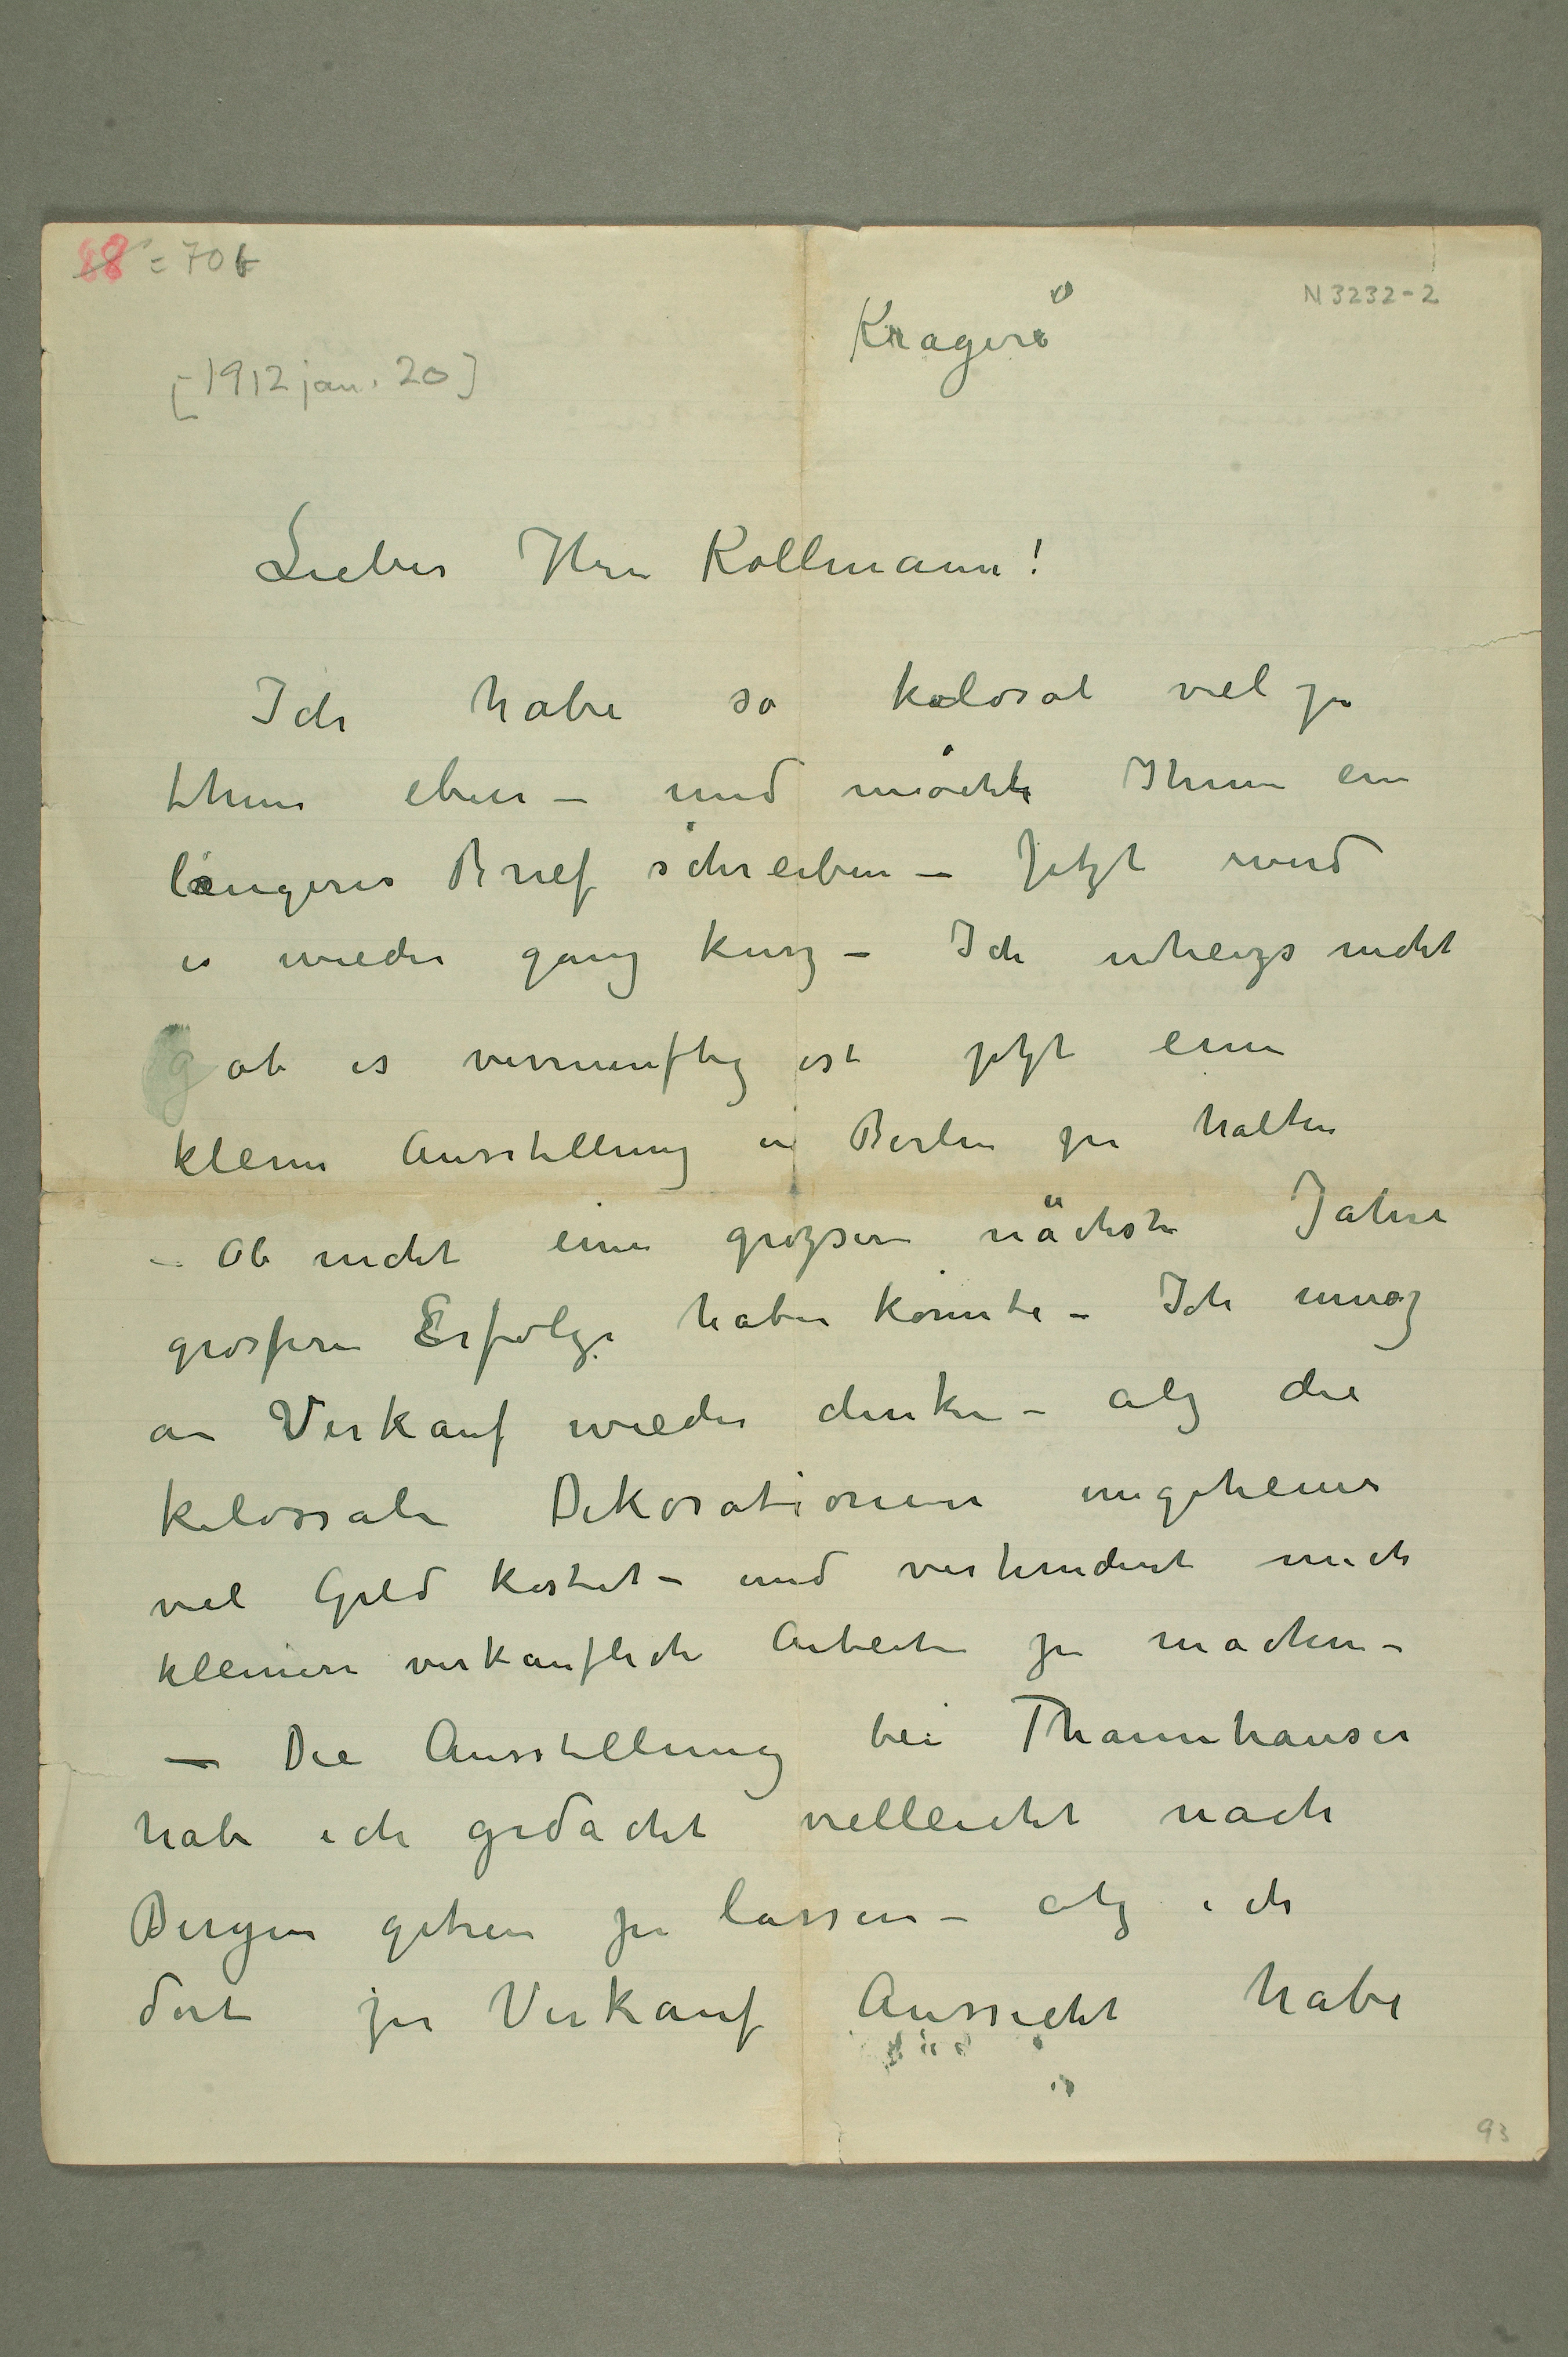 88 = 70 b
N 3232-2
Kragerö
[1912 jan. 20]
Lieber Herr Kollmann!
Ich habe so kolosal viel zu
thun eben – und möchte Ihnen ein
längeres Brief schreiben – Jetzt wird
es wieder ganz kurz – Ich wheizs nicht
ob es vernunftig ist jetzt eine
kleine Ausstellung in Berlin zu halten
– Ob nicht eine grozsere nächste Jahre
grossere Erfolge haben könnte – Ich muoz
an Verkauf wieder denken – alz die
kolossale Dekorationen ungeheure
viel Geld kostet – und verhindert mich
kleinere verkaufliche Arbeite zu machen –
– Die Ausstellung bei Thannhauser
habe ich gedacht vielleicht nach
Bergen gehen zu lassen – alz ich
dort zu Verkauf Aussicht habe
93